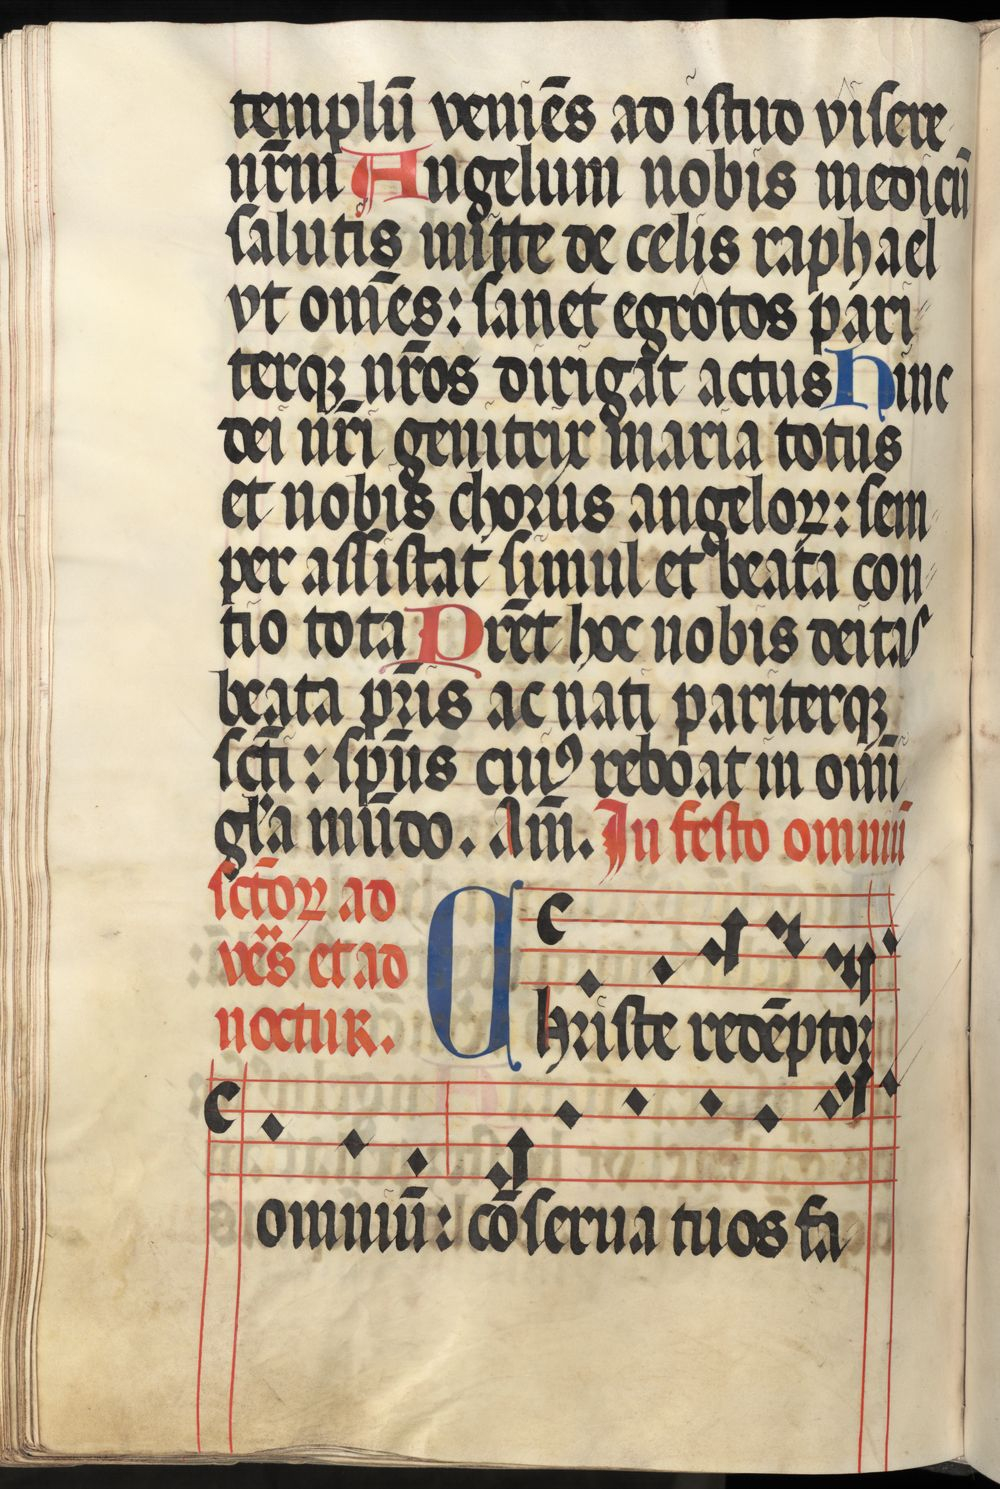 templū veniēs ad istud visere
nr̄m Angelum nobis medicū
salutis mitte de celis raphael
vt om̄es: sanet egrotos pari
terqꝫ nr̄os dirigat actus hinc
dei nr̄i genitrix maria totus
et nobis chorus angeloꝝ: sem
per assistat simul et beata con
tio tota Pr̄et hoc nobis deitas
beata pr̄is ac nati pariterqꝫ
sct̄i: spūs cuiꝰ reboat in om̄i
gl̄a mūdo. Am̄. In festo omniū
sct̄oꝝ ad
ves̄ et ad
noctur.
Christe redēptor
omniū: cōserua tuos fa